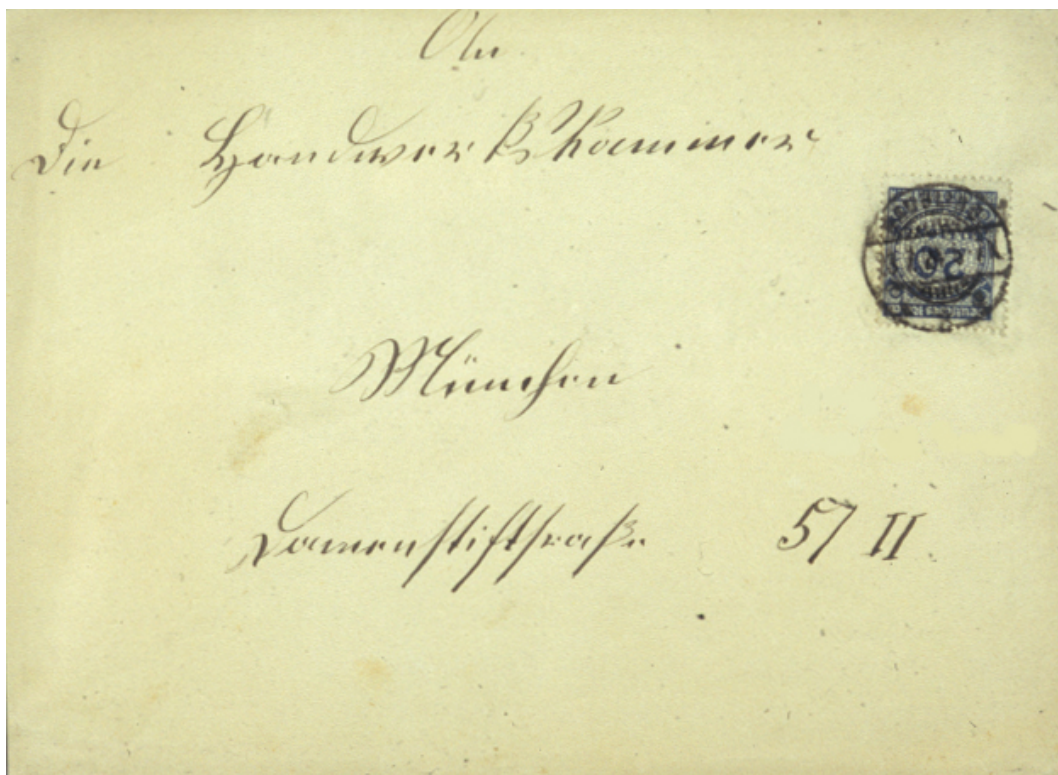 An
Die Handwerkskammer
20
München
Damenstiftstraße 57 II.